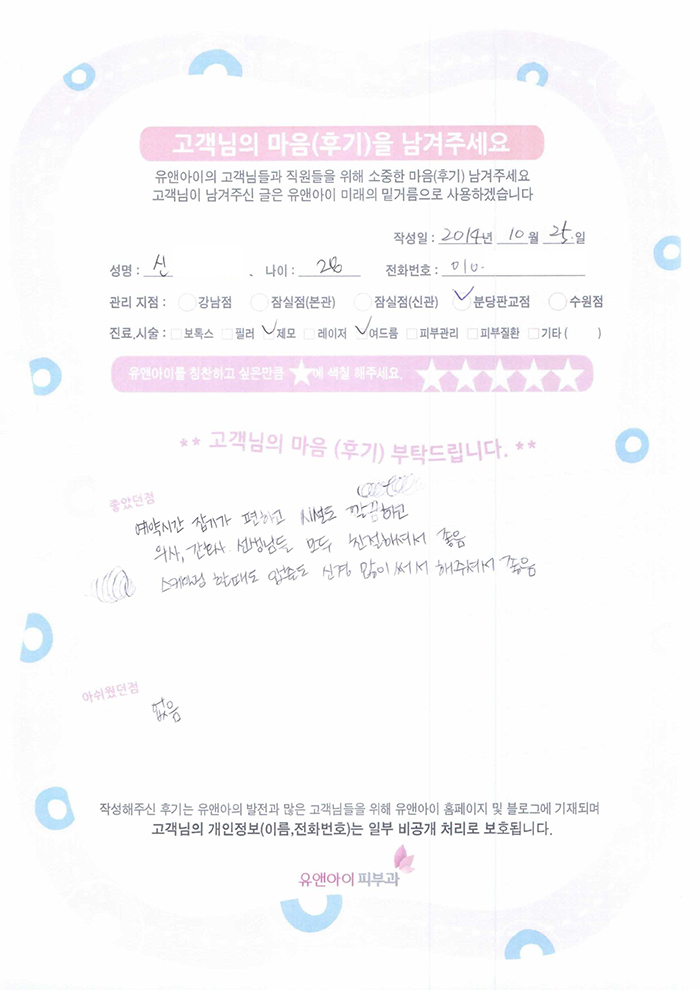 고객님의 마음(후기)을 남겨주세요
유앤아이의 고객님들과 직원들을 위해 소중한 마음(후기) 남겨주세요
고객님이 남겨주신 글은 유앤아이 미래의 밑거름으로 사용하겠습니다
작성일 : 2014년 10월 25.일
성명 : 신 나이 : 28 전화번호 : 010.
관리 지점 : 강남점 잠실점(본관) 잠실점(신관) 분당판교점 수원점
진료,시술 : 보톡스 필러 제모 레이저 여드름 피부관리 피부질환 기타 ( )
유앤아이를 칭찬하고 싶은만큼 ★에 색칠 해주세요. ★★★★★
** 고객님의 마음 (후기) 부탁드립니다. **
좋았던점
예약시간 잡기가 편하고 시설도 깔끔하고
의사, 간호사 선생님들 모두 친절하셔서 좋음
스케일링 할때도 압출도 신경 많이 써서 해주셔서 좋음
아쉬웠던점
없음
작성해주신 후기는 유앤아의 발전과 많은 고객님들을 위해 유앤아이 홈페이지 및 블로그에 기재되며
고객님의 개인정보(이름,전화번호)는 일부 비공개 처리로 보호됩니다.
유앤아이 피부과